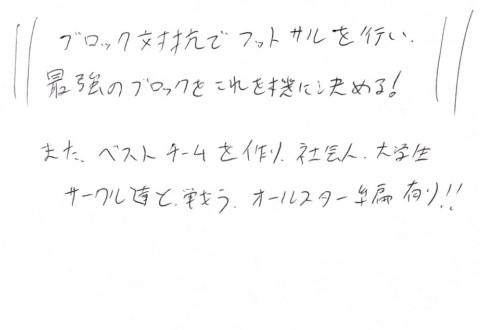 ブロック対抗でフットサルを行い、
最強のブロックをこれを機に決める!
また、ベストチームを作り、社会人、大学生
サークル達と、戦う、オールスター編有り!!